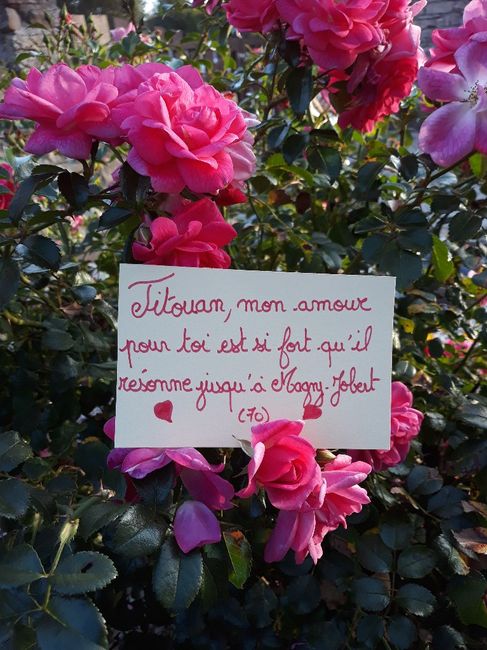 Titouan, mon amour
pour toi est si fort qu'il
résonne jusqu'à Magny-Jobert
(70)